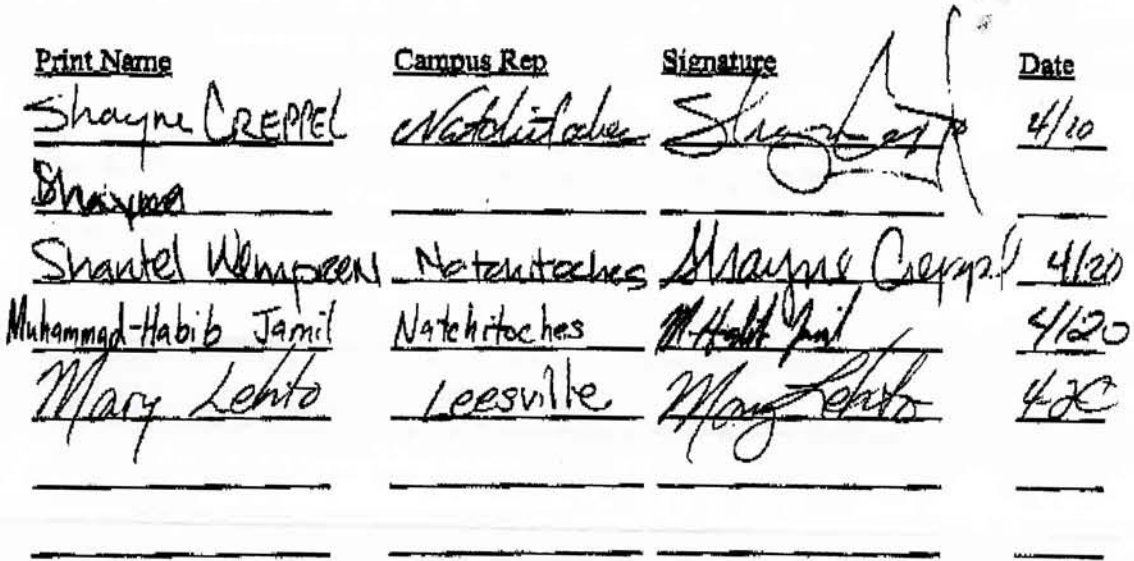 Print Name Campus Rep Signature Date
Shayne CREPPEL Natchitoches 4/20
Shayna
Shantel Natchitoches Shayne Creppel 4/20
Muhammad-Habib Jamil Natchitoches M-Habib Jamil 4/20
Mary Lehto Leesville Mary Lehto 4-20